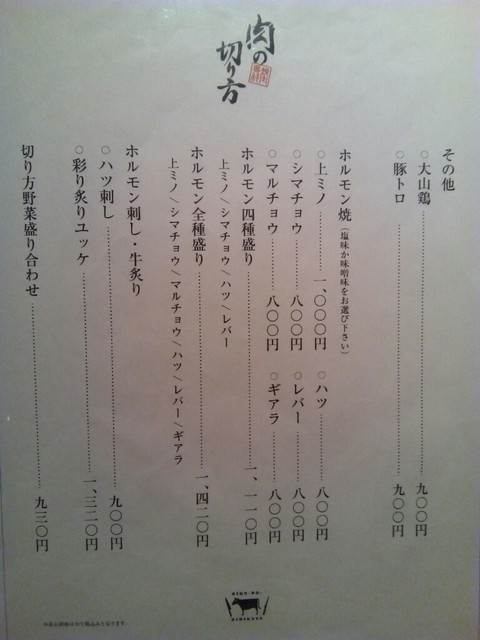 肉の
切り方
その他
○大山鶏 九〇〇円
○豚トロ 九〇〇円
ホルモン焼（塩味か味噌味をお選び下さい）
○上ミノ 一、〇〇〇円 ○ハツ 八〇〇円
○シマチョウ 八〇〇円 ○レバー 八〇〇円
○マルチョウ 八〇〇円 ○ギアラ 八〇〇円
ホルモン四種盛り 一、一一〇円
上ミノ／シマチョウ／ハツ／レバー
ホルモン全種盛り 一、四二〇円
上ミノ／シマチョウ／マルチョウ／ハツ／レバー／ギアラ
ホルモン刺し・牛炙り
○ハツ刺し 九〇〇円
○彩り炙りユッケ 一、三二〇円
切り方野菜盛り合わせ 九三〇円
NIKU-NO-
KIRIKATA